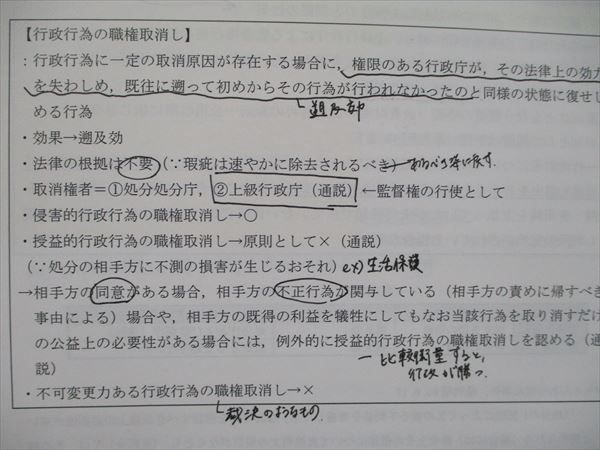 【行政行為の職権取消し】
：行政行為に一定の取消原因が存在する場合に，権限のある行政庁が，その法律上の効力
を失わしめ，既往に遡って初めからその行為が行われなかったのと同様の状態に復せし
める行為
遡及効
・効果→遡及効
・法律の根拠は不要（∵瑕疵は速やかに除去されるべき）
あるべき姿に戻す.
・取消権者＝①処分処分庁，②上級行政庁（通説）←監督権の行使として
・侵害的行政行為の職権取消し→○
・授益的行政行為の職権取消し→原則として×（通説）
（∵処分の相手方に不測の損害が生じるおそれ）ex)生活保護
→相手方の同意がある場合，相手方の不正行為が関与している（相手方の責めに帰すべき
事由による）場合や，相手方の既得の利益を犠牲にしてもなお当該行為を取り消すだけ
の公益上の必要性がある場合には，例外的に授益的行政行為の職権取消しを認める（通
説）
比較衡量すると,
行政が勝つ.
・不可変更力ある行政行為の職権取消し→×
裁決のようなもの.